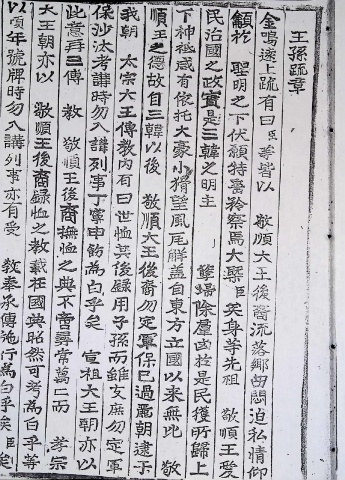 王孫疏章
金鳴遂上疏有曰臣等皆以 敬順大王後裔流落鄕曲悶迫私情仰
籲於 聖明之下伏願特垂矜察焉大槩臣矣身等先祖 敬順王愛
民治國之政實是三韓之明主 簪掃除塵函於是民獲所歸上
下神祗咸有依托大豪小猾望風尾觧盖自東方立國以来無比 敬
順王之德故自三韓以後 敬順大王後裔勿定軍保已過麗朝逮于
我朝 太宗大王傳敎內有曰世恤其後錄用子孫而雖支庶勿定軍
保沙汰考講時勿入講列事丁寧申飭為白乎矣 宣祖大王朝亦以
此意再三傳 敎 敬順王後裔撫恤之典不啻尋常萬二而 孝宗
大王朝亦以 敬順王後裔錄恤之敎載在國典昭然可考為白乎等
以頃年號牌時勿入講列事亦有受 敎奉承傳施行為白乎矣臣矣